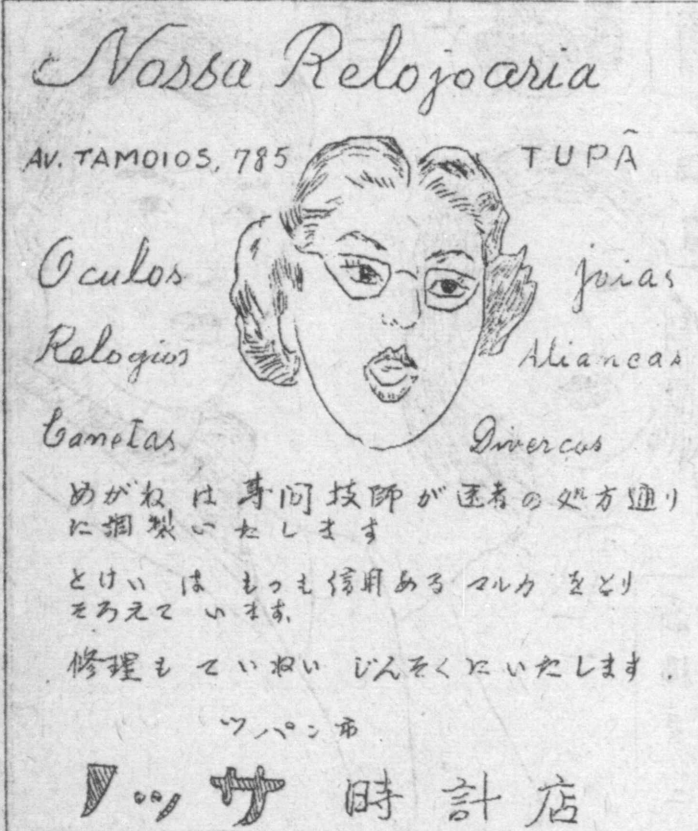 Nossa Relojoaria
AV. TAMOIOS, 785 TUPÂ
Oculos Joias
Relogios Aliancas
Canetas Divercos
めがね は 専门 技師 が 医者 の 処方 通り
に 調 製 い た し ま す
とけい は もっも 信用 ある マルカ をとり
そろえて います。
修理も ていねい じんそくにいたします.
ツパン市
ノッサ 時計店